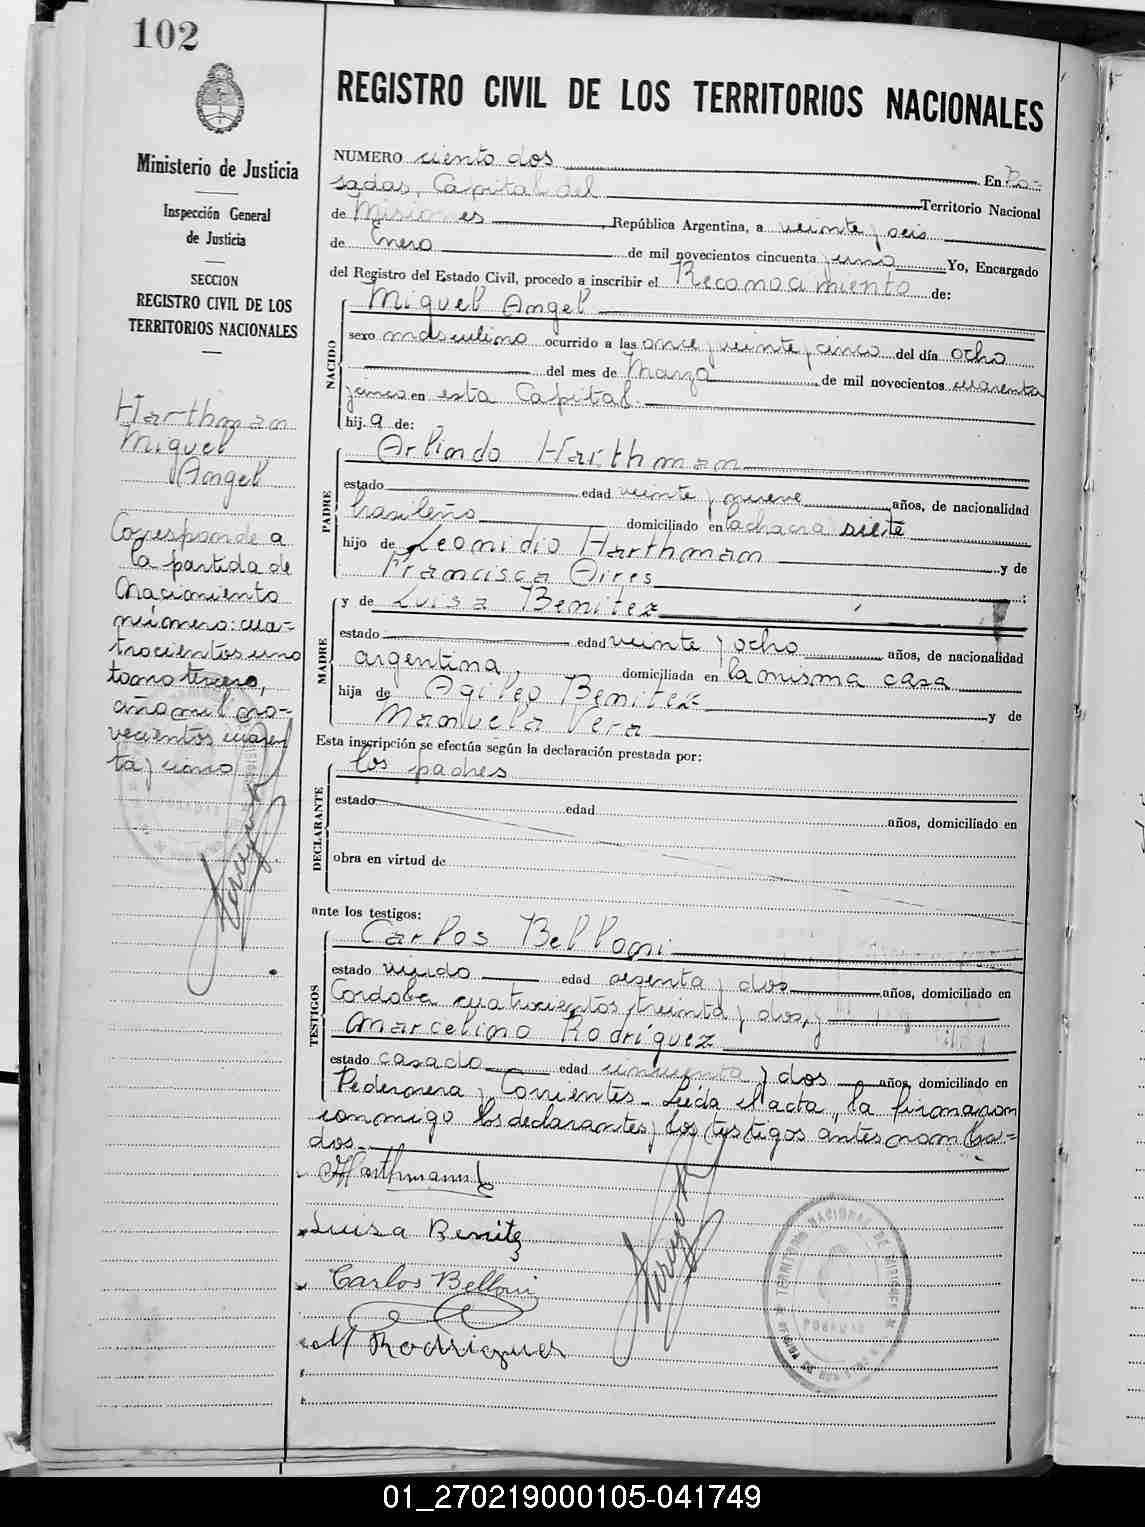 102
Ministerio de Justicia
Inspección General
de Justicia
SECCION
REGISTRO CIVIL DE LOS
TERRITORIOS NACIONALES
Harthman
Miguel
Angel
Corresponde a
la partida de
Nacimiento
número: cua-
trocientos uno
tomo tercero,
año mil no-
vecientos cuaren
ta y cinco
REGISTRO CIVIL DE LOS TERRITORIOS NACIONALES
NUMERO ciento dos En Po-
sadas, Capital del Territorio Nacional
de Misiones, República Argentina, a veinte y seis
de Enero de mil novecientos cincuenta y uno Yo, Encargado
del Registro del Estado Civil, procedo a inscribir el Reconocimiento de:
NACIDO
Miguel Angel
sexo masculino ocurrido a las once y veinte y cinco del día ocho
del mes de Marzo de mil novecientos cuarenta
y cinco en esta Capital.
hij.o de:
PADRE
Arlindo Harthman
estado edad veinte y nueve años, de nacionalidad
brasileño domiciliado en la chacra siete
hijo de Leonidio Harthman y de
Francisca Oires ;
MADRE
y de Luisa Benitez
estado edad veinte y ocho años, de nacionalidad
argentina, domiciliada en la misma casa
hija de Agileo Benitez y de
Manuela Vera
Esta inscripción se efectúa según la declaración prestada por:
DECLARANTE
los padres
estado edad años, domiciliado en
obra en virtud de
ante los testigos:
TESTIGOS
Carlos Belloni
estado viudo edad sesenta y dos años, domiciliado en
Cordoba cuatrocientos treinta y dos, y
Marcelino Rodríguez
estado casado edad cincuenta y dos años, domiciliado en
Pedernera y Corrientes. Leída el acta, la firmaron
conmigo los declarantes y los testigos antes nombra-
dos.
AHarthmann
Luisa Benitez
Carlos Belloni
M Rodriguez
TERRITORIO NACIONAL DE MISIONES
POSADAS
01_270219000105-041749